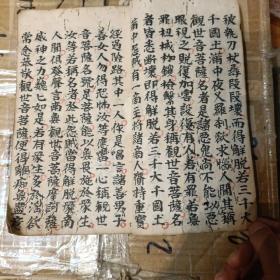 彼執刀杖尋段段壞而得解脫若三千大
千國土滿中夜叉羅刹欲來惱人聞其稱
觀世音菩薩名者是諸惡鬼尚不能以惡
眼視之況復加害設復有人若有罪若無
罪杻械枷鎖檢繫其身稱觀世音菩薩名
者皆悉斷壞即得解脫若三千大千國土
滿中怨賊有一商主將諸商人齎持重寶
經過險路其中一人作是唱言諸善男子
善女人勿得恐怖汝等應當一心稱觀世
音菩薩名號是菩薩能以無畏施於眾生
汝等若稱名者於此怨賊當得解脫眾商
人聞俱發聲言南無觀世音菩薩摩訶薩
威神之力巍巍如是若有眾生多於婬欲
常念恭敬觀世音菩薩便得離